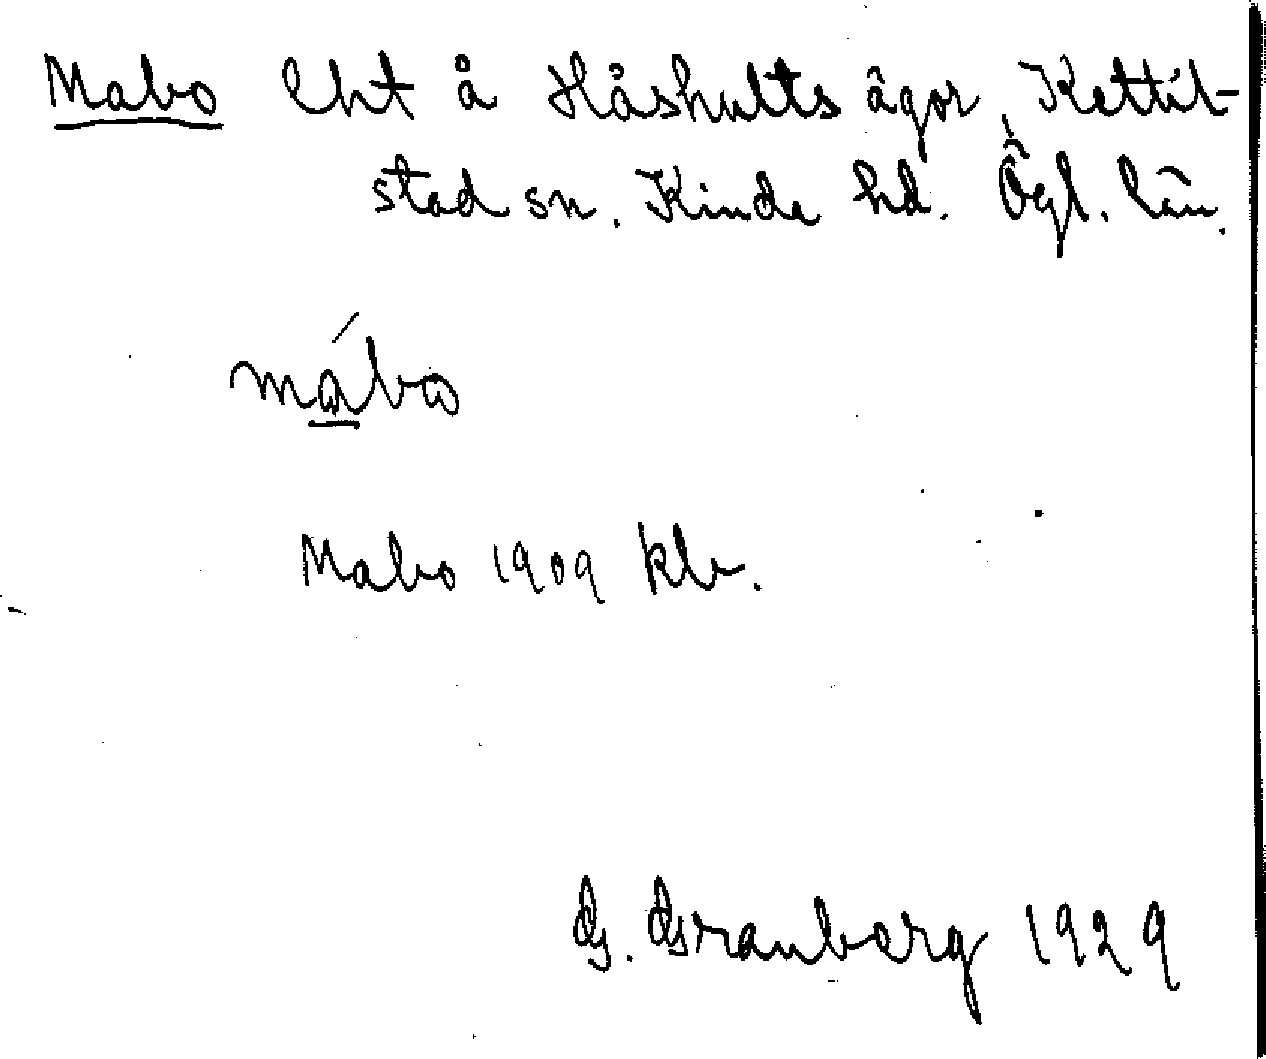 Mabo lht å Håshults ägor, Kettil-
stad sn. Kinda hd. Ögl. län.
mábo
Mabo 1909 kb.
G. Granberg 1929